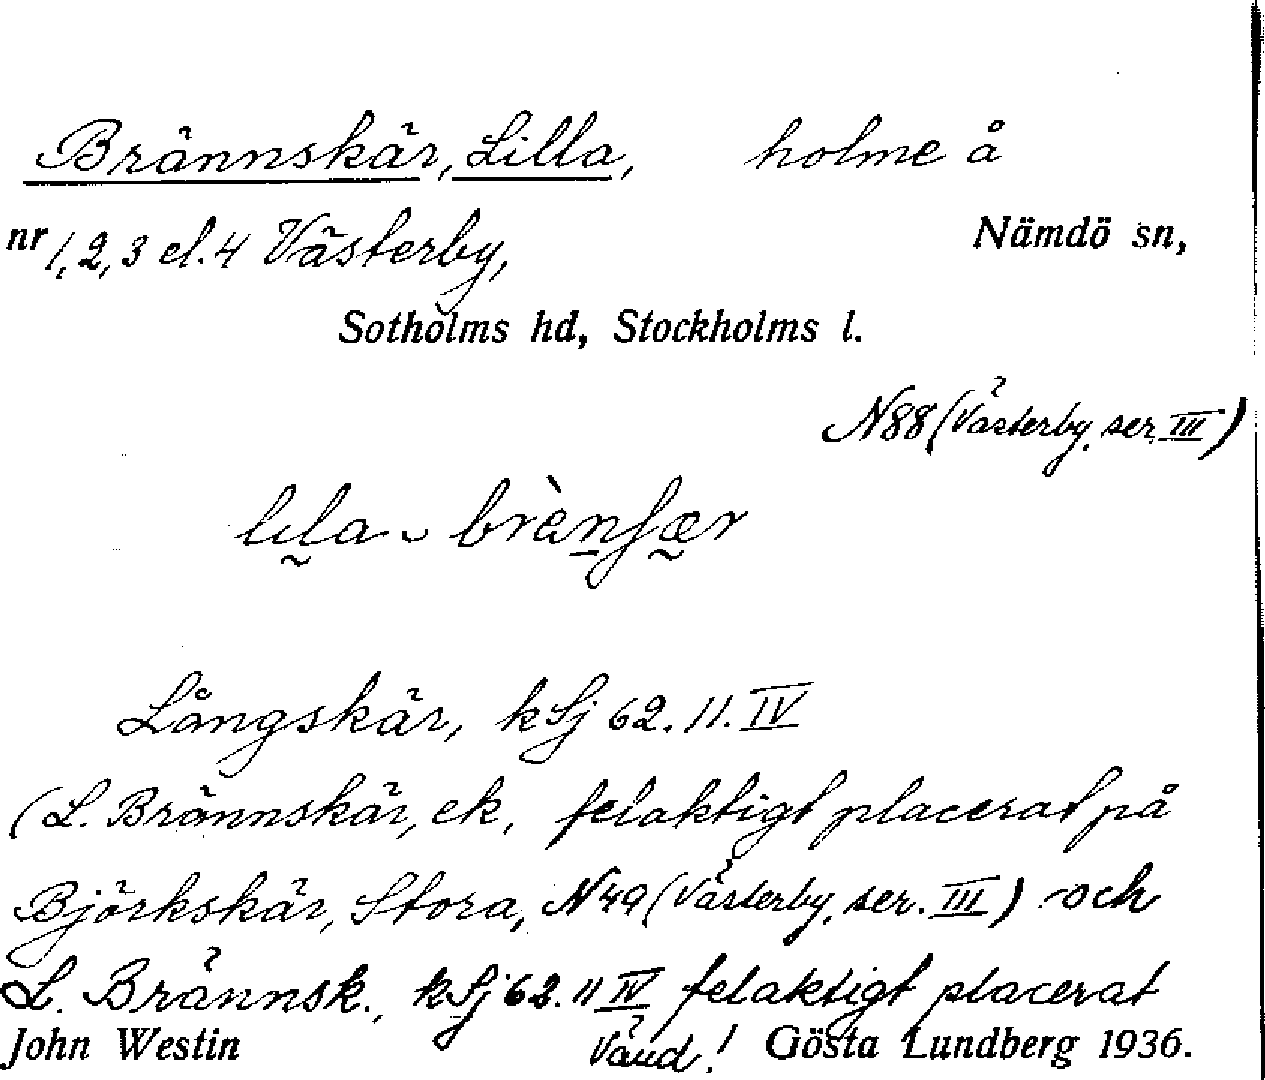 Brännskär, Lilla, holme å
nr 1, 2, 3 el. 4 Västerby, Nämdö sn,
Sotholms hd, Stockholms l.
N88 (Västerby, ser. III)
lıla - brènʃær
Långskär, kSj 62. 11. IV
(L. Brännskär, ek, felaktigt placerat på
Björkskär, Stora, N49 (Västerby, ser. III) och
L. Brännsk., kSj 62. 11 IV felaktigt placerat
John Westin Vänd! Gösta Lundberg 1936.